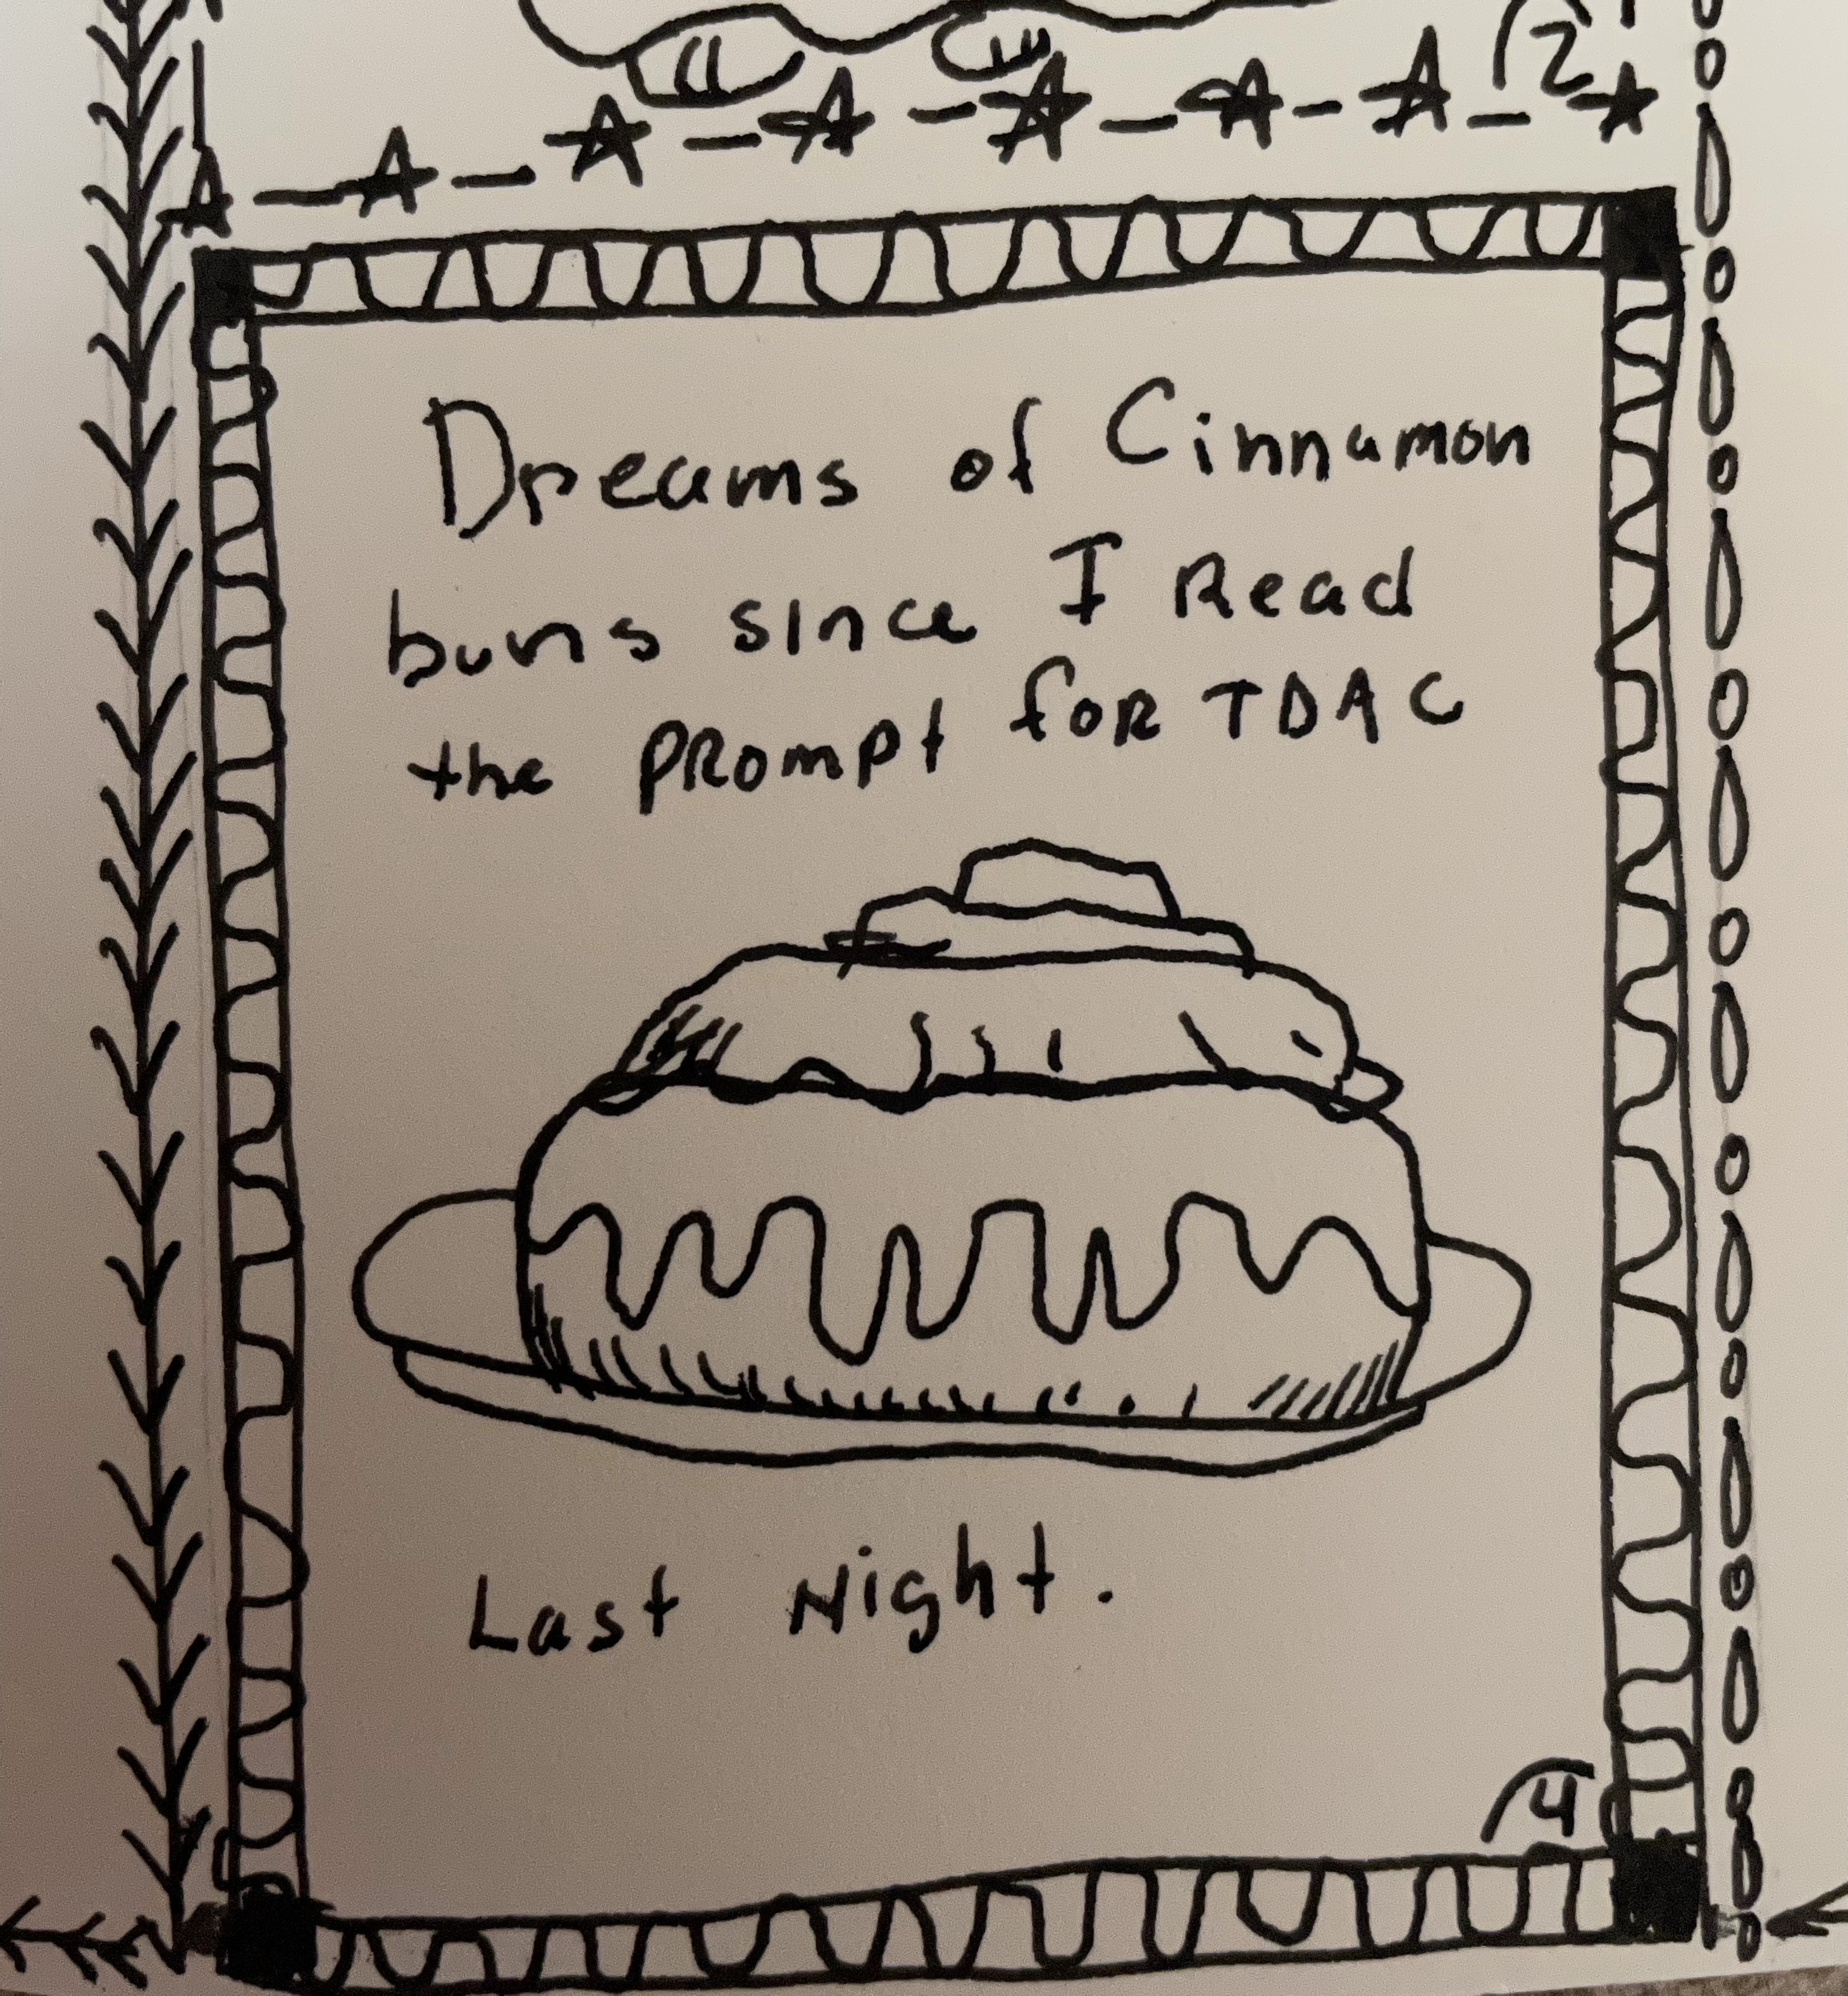 2
Dreams of Cinnamon
buns since I Read
the PROmpt for TDAC
Last Night.
4